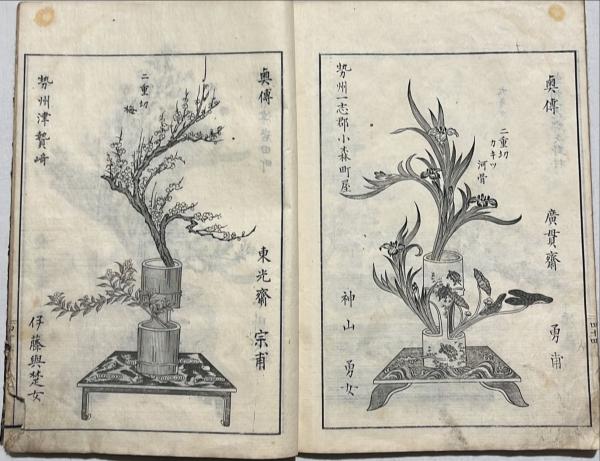 奥傳
二重切
カキツ
河骨
廣貫齋
勇甫
勢州一志郡小森町屋
神山
勇女
四十四
奥傳
二重切
梅
東光齋
宗甫
勢州津贄崎
伊藤與楚女